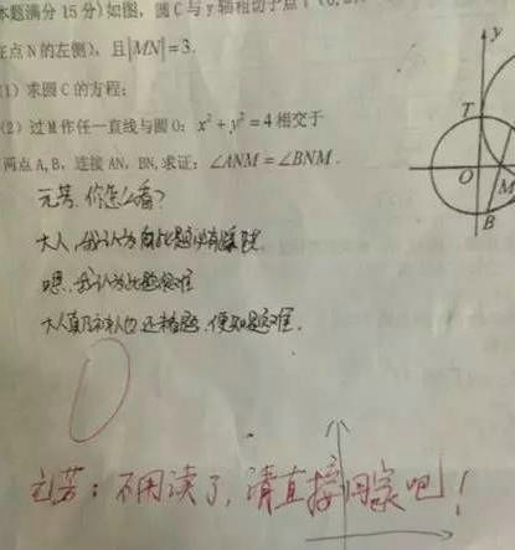 本题满分 15 分)如图, 圆 C 与 y 轴相切于点 T (0, 2)
在点 N 的左侧), 且|MN|=3.
(1) 求圆 C 的方程;
(2) 过 M 作任一直线与圆 O: x²+y²=4 相交于
两点 A, B, 连接 AN, BN, 求证: ∠ANM=∠BNM.
y
T
O
M
B
元芳,你怎么看?
大人,我认为此题必有蹊跷
嗯,我认为此题很难
大人真乃神人也,还未看题,便知题难.
0
元芳:不用读了,请直接回家吧!